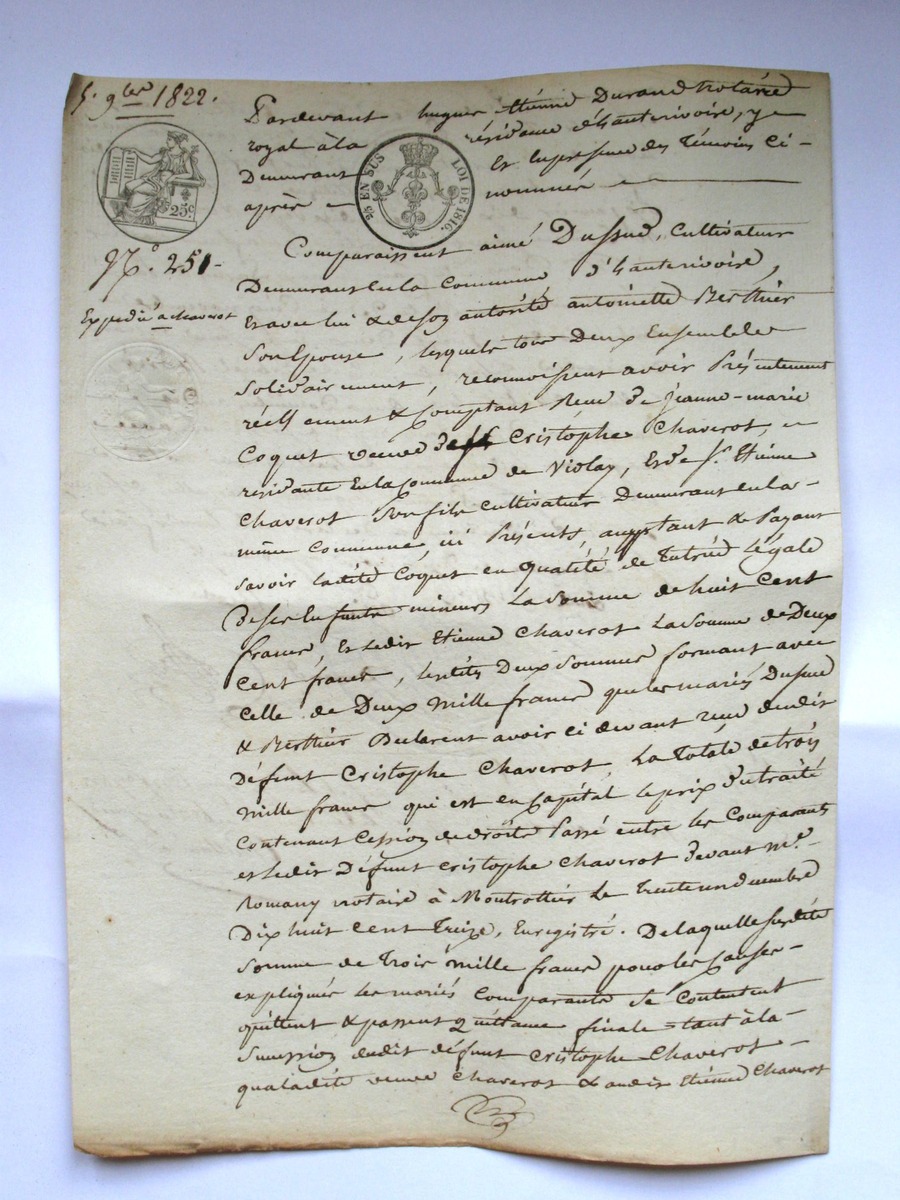 5. 9bre 1822.
25c
N.° 251
Expedié a chaverot
25 EN SUS LOI DE 1816.
Pardevant hugues Etienne Durand Notaire
royal à la résidence d'hauterivoire, y
Demeurant Et En presence des Témoins Ci-
après nommés
Comparaissent aimé Dussud, Cultivateur
Demeurant En la Commune d'hauterivoire,
Et avec lui & de Son autorité antoinette Berthier
Son Epouse, lesquels tous Deux Ensemble
Solidairement, reconnoissent avoir Présentement
réellement & Comptant Reçu de jeanne-marie
Coquet veuve de Cristophe Chaverot,
résidante En la Commune de Violay, Et de St. Etienne
Chaverot Son fils Cultivateur Demeurant En la
même Commune, ici Présents, acceptant & Payant
Savoir ladite Coquet en Qualité de Tutrice Légale
De ses Enfants mineurs La Somme de huit Cent
francs, Et ledit Etienne Chaverot La Somme de Deux
Cent francs, lesdites Deux Sommes formant avec
Celle de Deux Mille francs que les mariés Dussud
& Berthier Déclarent avoir ci devant reçu dudit
Défunt Cristophe Chaverot, La Totale de trois
mille francs qui est en Capital le prix d'un traité
Contenant Cession de droits Passé entre les Comparants
et ledit Défunt Cristophe Chaverot Devant Me.
Romany Notaire à Montrottier Le Trente un décembre
Dix huit Cent Treize, Enregistré. De laquelle susdite
Somme de Trois mille francs pour les Causes
expliquées les mariés Comparants Se Contentent
quittent & passent Quittance finale tant à la
Succession dudit défunt Cristophe Chaverot
qu'a ladite veuve Chaverot & audit Etienne Chaverot